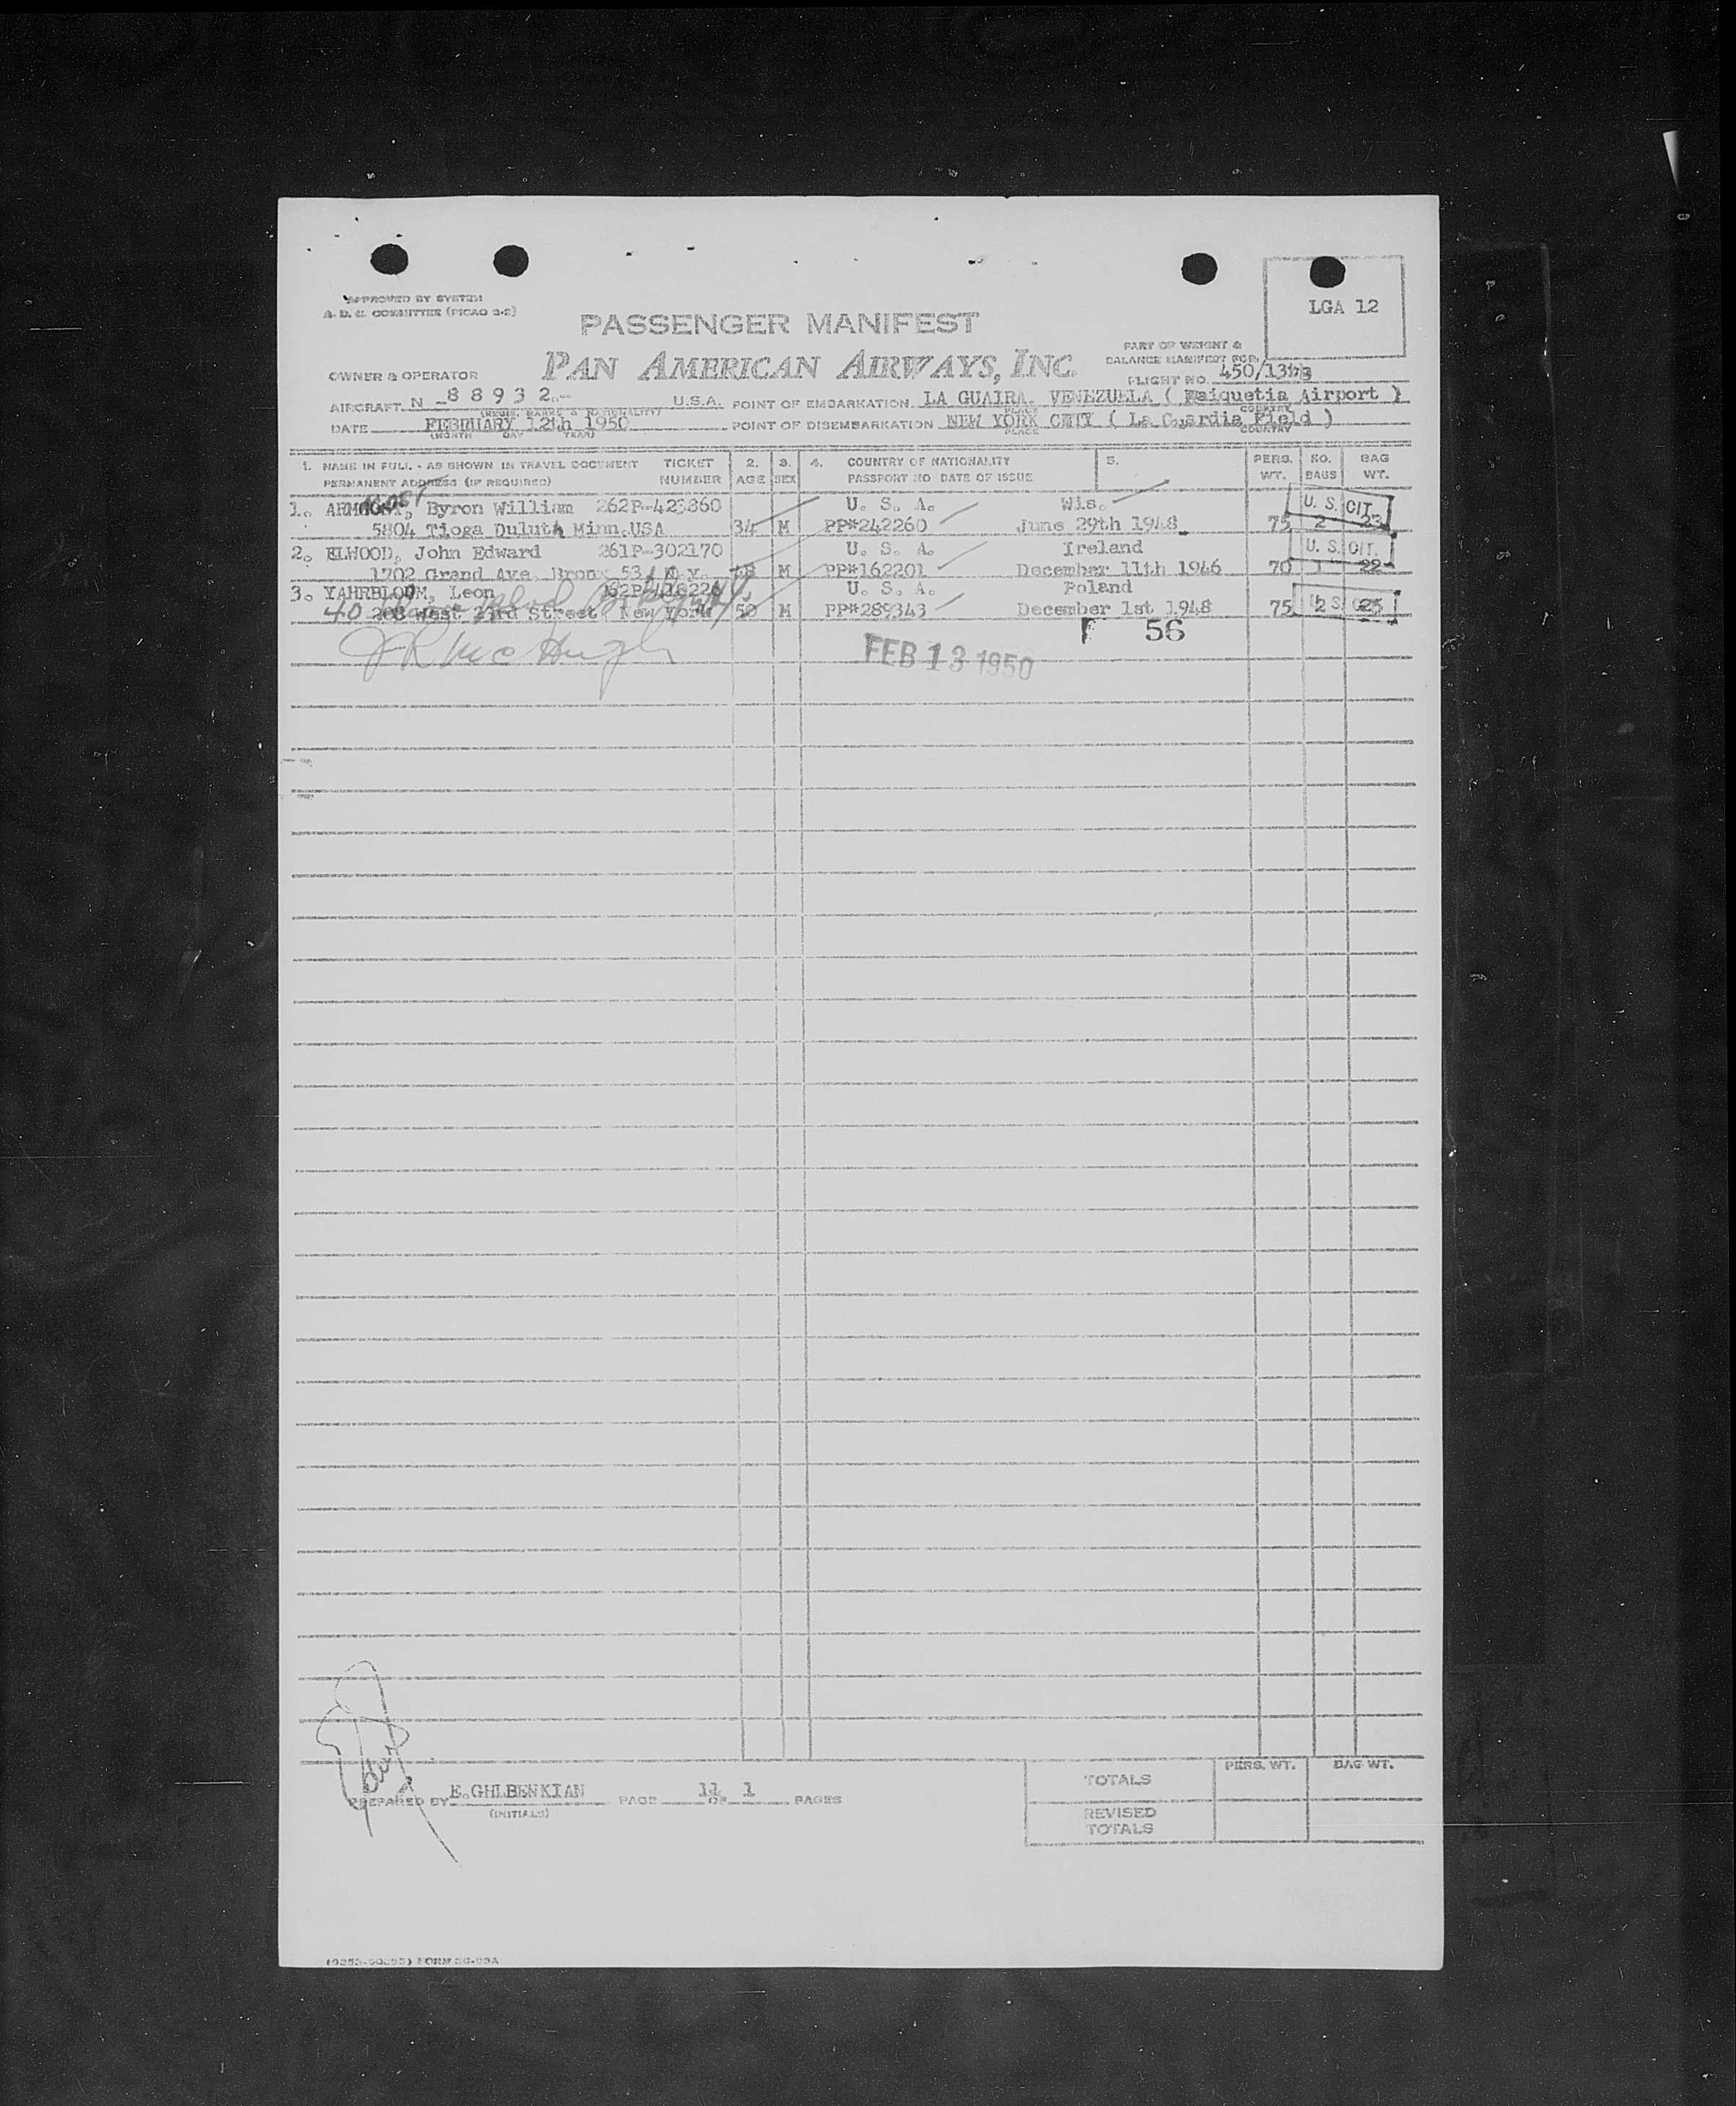 APPROVED BY SYSTEM
A. D. C. COMMITTEE (PICAO 3-2)
LGA 12
PASSENGER MANIFEST
PAN AMERICAN AIRWAYS, INC.
PART OF WEIGHT &
BALANCE MANIFEST FOR
OWNER & OPERATOR
FLIGHT NO. 450/13
AIRCRAFT N 8 8 9 3 2 U.S.A. POINT OF EMBARKATION LA GUAIRA, VENEZUELA ( Maiquetia Airport )
(REGIS. MARKS & NATIONALITY) PLACE COUNTRY
DATE FEBRUARY 12th 1950 POINT OF DISEMBARKATION NEW YORK CITY ( La Guardia Field )
(MONTH DAY YEAR) PLACE COUNTRY
1. NAME IN FULL - AS SHOWN IN TRAVEL DOCUMENT TICKET 2. 3. 4. COUNTRY OF NATIONALITY 5. PERS. NO. BAG
PERMANENT ADDRESS (IF REQUIRED) NUMBER AGE SEX PASSPORT NO DATE OF ISSUE WT. BAGS WT.
1. Byron William 262P-423860 U. S. A. Wis. U. S. CIT.
5804 Tioga Duluth Minn.USA 34 M PP#242260 June 29th 1948 75 2 23
2. ELWOOD, John Edward 261P-302170 U. S. A. Ireland U. S. CIT.
1702 Grand Ave. Bronx 53 N.Y. M PP#162201 December 11th 1946 70 1 22
3. YAHRBLOOM, Leon U. S. A. Poland
40 West 23rd Street New York 50 M PP#289343 December 1st 1948 75 2 U S
56
J R McHugh
FEB 13 1950
PREPARED BY E.GHLBENKIAN PAGE 11 OF 1 PAGES
(INITIALS)
PERS. WT. BAG WT.
TOTALS
REVISED
TOTALS